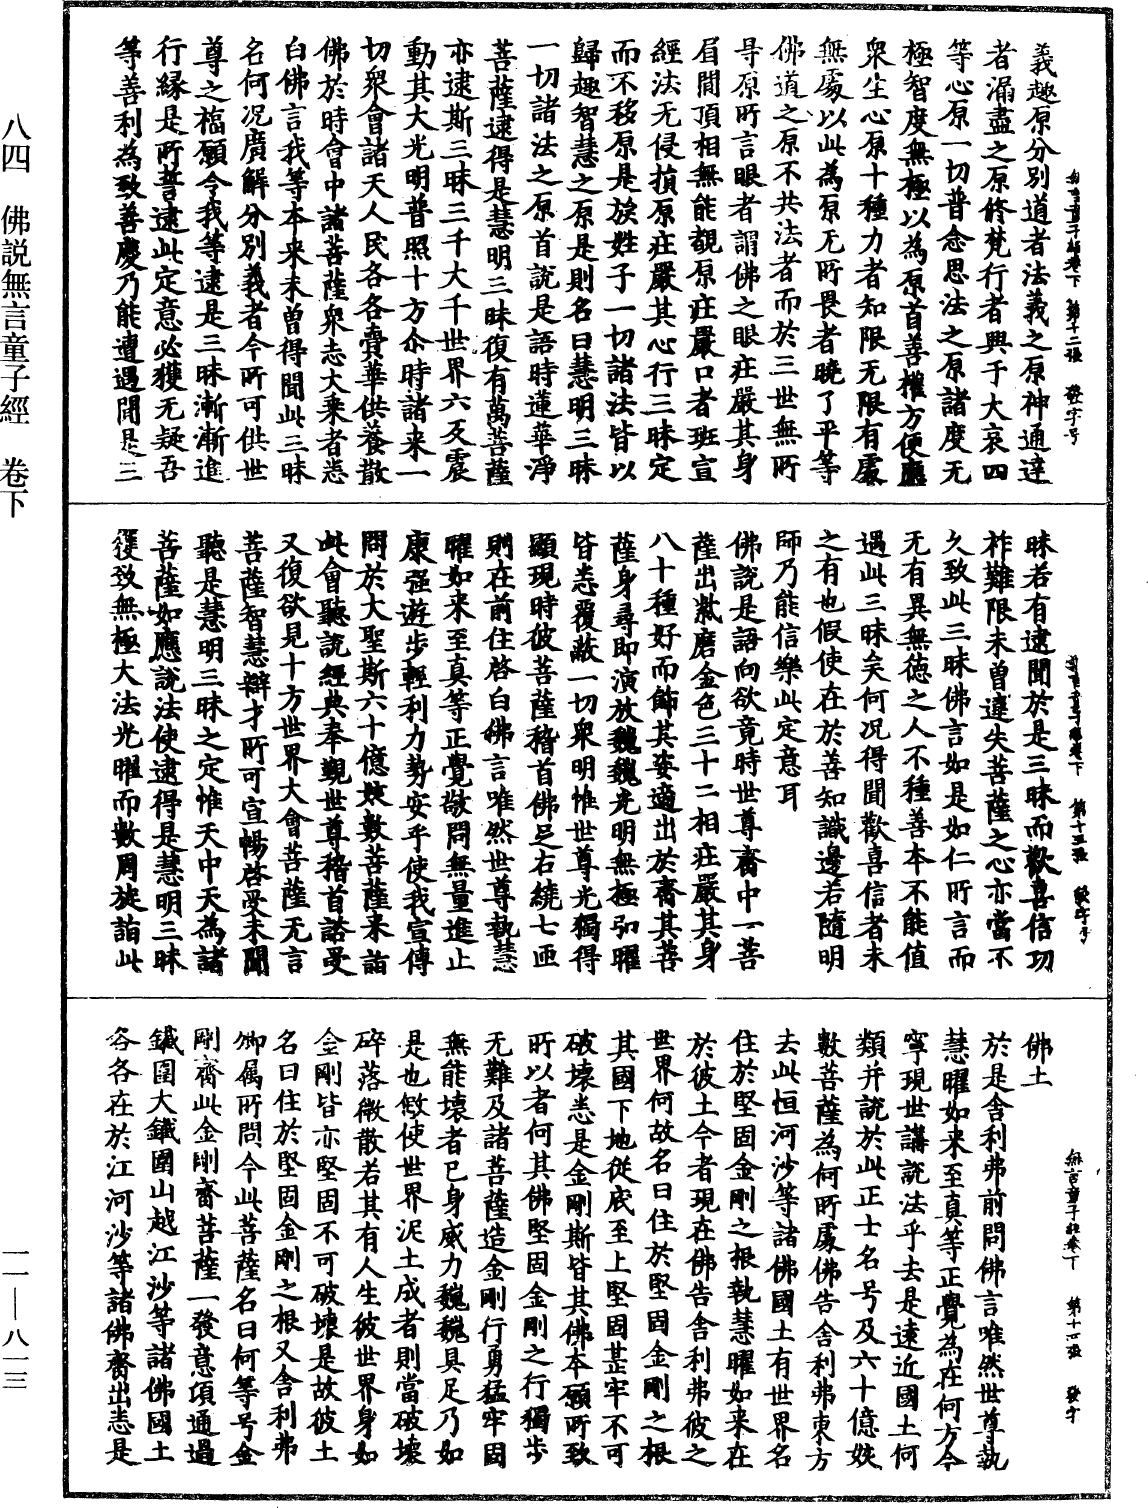 八四　佛説無言童子經　卷下
一一—八一三
義趣原分別道者法義之原神通達
者漏盡之原修梵行者興于大哀四
等心原一切普念思法之原諸度无
極智度無極以為原首善權方便應
衆生心原十種力者知限无限有處
無處以此為原无所畏者曉了平等
佛道之原不共法者而於三世無所
㝵原所言眼者謂佛之眼莊嚴其身
眉間頂相無能覩原莊嚴口者班宣
經法无侵損原莊嚴其心行三昧定
而不移原是族姓子一切諸法皆以
歸趣智慧之原是則名曰慧明三昧
一切諸法之原首說是語時蓮華淨
菩薩逮得是慧明三昧復有萬菩薩
亦逮斯三昧三千大千世界六反震
動其大光明普照十方尒時諸来一
切衆會諸天人民各各賷華供養散
佛於時會中諸菩薩衆志大乗者悉
白佛言我等本来未曽得聞此三昧
名何況廣解分別義者今所可供世
尊之福願令我等逮是三昧漸漸進
行縁是所誓逮此定意必獲无疑吾
等善利為致善慶乃能遭遇聞是三
昧若有逮聞於是三昧而歡喜信功
祚難限未曽違失菩薩之心亦當不
久致此三昧佛言如是如仁所言而
无有異無德之人不種善本不能值
遇此三昧矣何況得聞歡喜信者未
之有也假使在於善知識邊若隨明
師乃能信樂此定意耳
佛說是語向欲竟時世尊齎中一菩
薩出紫磨金色三十二相莊嚴其身
八十種好而飾其姿適出於齎其菩
薩身尋即演放巍巍光明無極弘曜
皆悉覆蔽一切衆明惟世尊光獨得
顯現時彼菩薩稽首佛足右繞七匝
則在前住啓白佛言唯然世尊執慧
曜如来至真等正覺敬問無量進止
康强遊步輕利力勢安乎使我宣傳
問於大聖斯六十億姟數菩薩来詣
此會聽說經典奉覲世尊稽首諮受
又復欲見十方世界大會菩薩无言
菩薩智慧辯才所可宣暢啓受未聞
聽是慧明三昧之定惟天中天為諸
菩薩如應說法使逮得是慧明三昧
復致無極大法光曜而數周旋詣此
佛土
於是舎利弗前問佛言唯然世尊執
慧曜如来至真等正覺為在何方今
寧現世講說法乎去是遠近國土何
類并說於此正士名号及六十億姟
數菩薩為何所處佛告舎利弗東方
去此恒河沙等諸佛國土有世界名
住於堅固金剛之根執慧曜如来在
於彼土今者現在佛告舎利弗彼之
世界何故名曰住於堅固金剛之根
其國下地從底至上堅固甚牢不可
破壞悉是金剛斯皆其佛本願所致
所以者何其佛堅固金剛之行獨步
无難及諸菩薩造金剛行勇猛牢固
無能壞者已身威力巍巍具足乃如
是也敢使世界泥土成者則當破壞
碎落微散若其有人生彼世界身如
金剛皆亦堅固不可破壞是故彼土
名曰住於堅固金剛之根又舎利弗
卿属所問今此菩薩名曰何等号金
剛齎此金剛齎菩薩一發意項通過
鐵圍大鐵圍山越江沙等諸佛國土
各各在於江河沙等諸佛齎出悉是